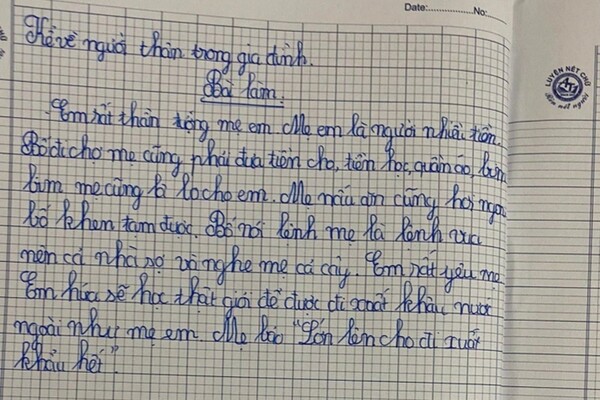 Date: No:
Kể về người thân trong gia đình.
Bài làm.
Em rất thần tượng mẹ em. Mẹ em là người nhiều tiền.
Bố đi chợ mẹ cũng phải đưa tiền cho, tiền học, quần áo, bim
bim mẹ cũng lo cho em. Mẹ nấu ăn cũng hơi ngon
bố khen tạm được. Bố nói lệnh mẹ là lệnh vua
nên cả nhà sợ và nghe mẹ cả. Em rất yêu mẹ
Em hứa sẽ học thật giỏi để được đi xuất khẩu nước
ngoài như mẹ em. Mẹ bảo "Lớn lên cho đi xuất
khẩu hết".
LUYỆN NÉT CHỮ